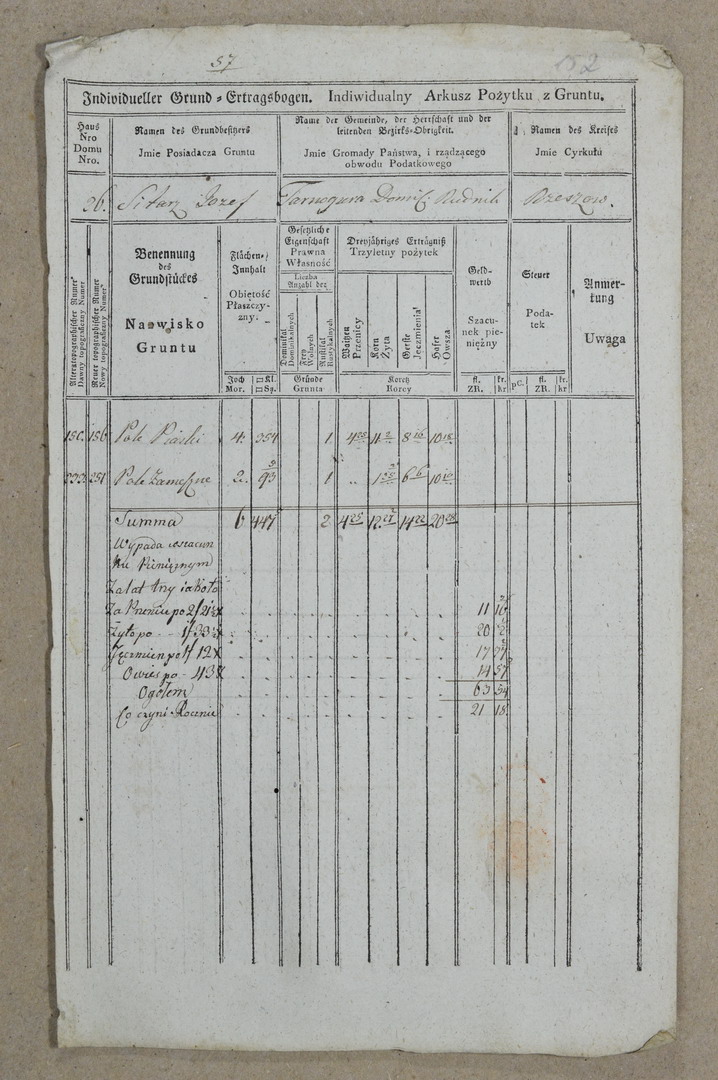 57
152
Individueller Grund-Ertragsbogen. Indiwidualny Arkusz Pożytku z Gruntu.
Haus Nro Domu Nro.
Namen des Grundbesitzers
Jmie Posiadacza Gruntu
Name der Gemeinde, der Herrschaft und der
leitenden Bezirks-Obrigkeit.
Jmie Gromady Państwa, i rządzącego
obwodu Podatkowego
Namen des Kreises
Jmie Cyrkułu
26. Sitarz Jozef Tarnogura Domi: Rudnik Rzeszow.
Alter topographischer Numer
Dawny topograficzny Numer
Neuer topographischer Numer
Nowy topograficzny Numer
Benennung
des
Grundstückes
Nazwisko
Gruntu
Flächen-
Innhalt
Obiętość
Płaszczyzny:
Joch Mor.
□Kl. □Są.
Gesetzliche
Eigenschaft
Prawna
Własność
Liczba
Anzahl der
Dominikal
Dominikalnych
Frey
Wolnych
Rustikal
Rustykalnych
Gründe
Grunta
Dreyjähriges Erträgniß
Trzyletny pożytek
Waitzen
Przenicy
Korn
Żyta
Gerste
Jęczmienia
Hafer
Owsa
Koretz
Korcy
Geld-
werth
Szacu-
nek pie-
niężny
fl. ZR.
kr. kr
Steuer
Poda-
tek
pC.
fl. ZR.
kr. kr
Anmer-
kung
Uwaga
150. 156 Pole Piaski 4. 354 1 4 11 8 16 10 18
251 Pole 2. 93 1 „ 1 6 6 10 10
Summa 6 447 2 4 25 12 27 14 22 20 28
Wypada w szacun
ku Pieniężnym
Za lat trzy iako to
Za Przenice po 2/21 x 11 16
Żyto po 1/33 x 20
Jęczmien po 1/12 x 17
Owies po 43 x 14 57
Ogółem 63 54
Co czyni Rocznie 21 18